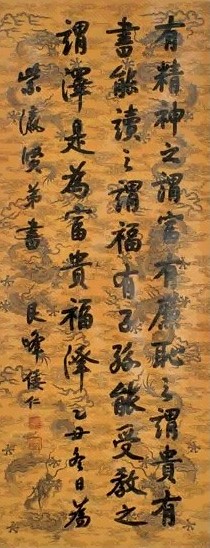 有精神之謂富有廉恥之謂貴有
書能讀之謂福有子孫能受教之
謂澤是為富貴福澤乙丑冬日為
紫瀛賢弟書 艮峰倭仁